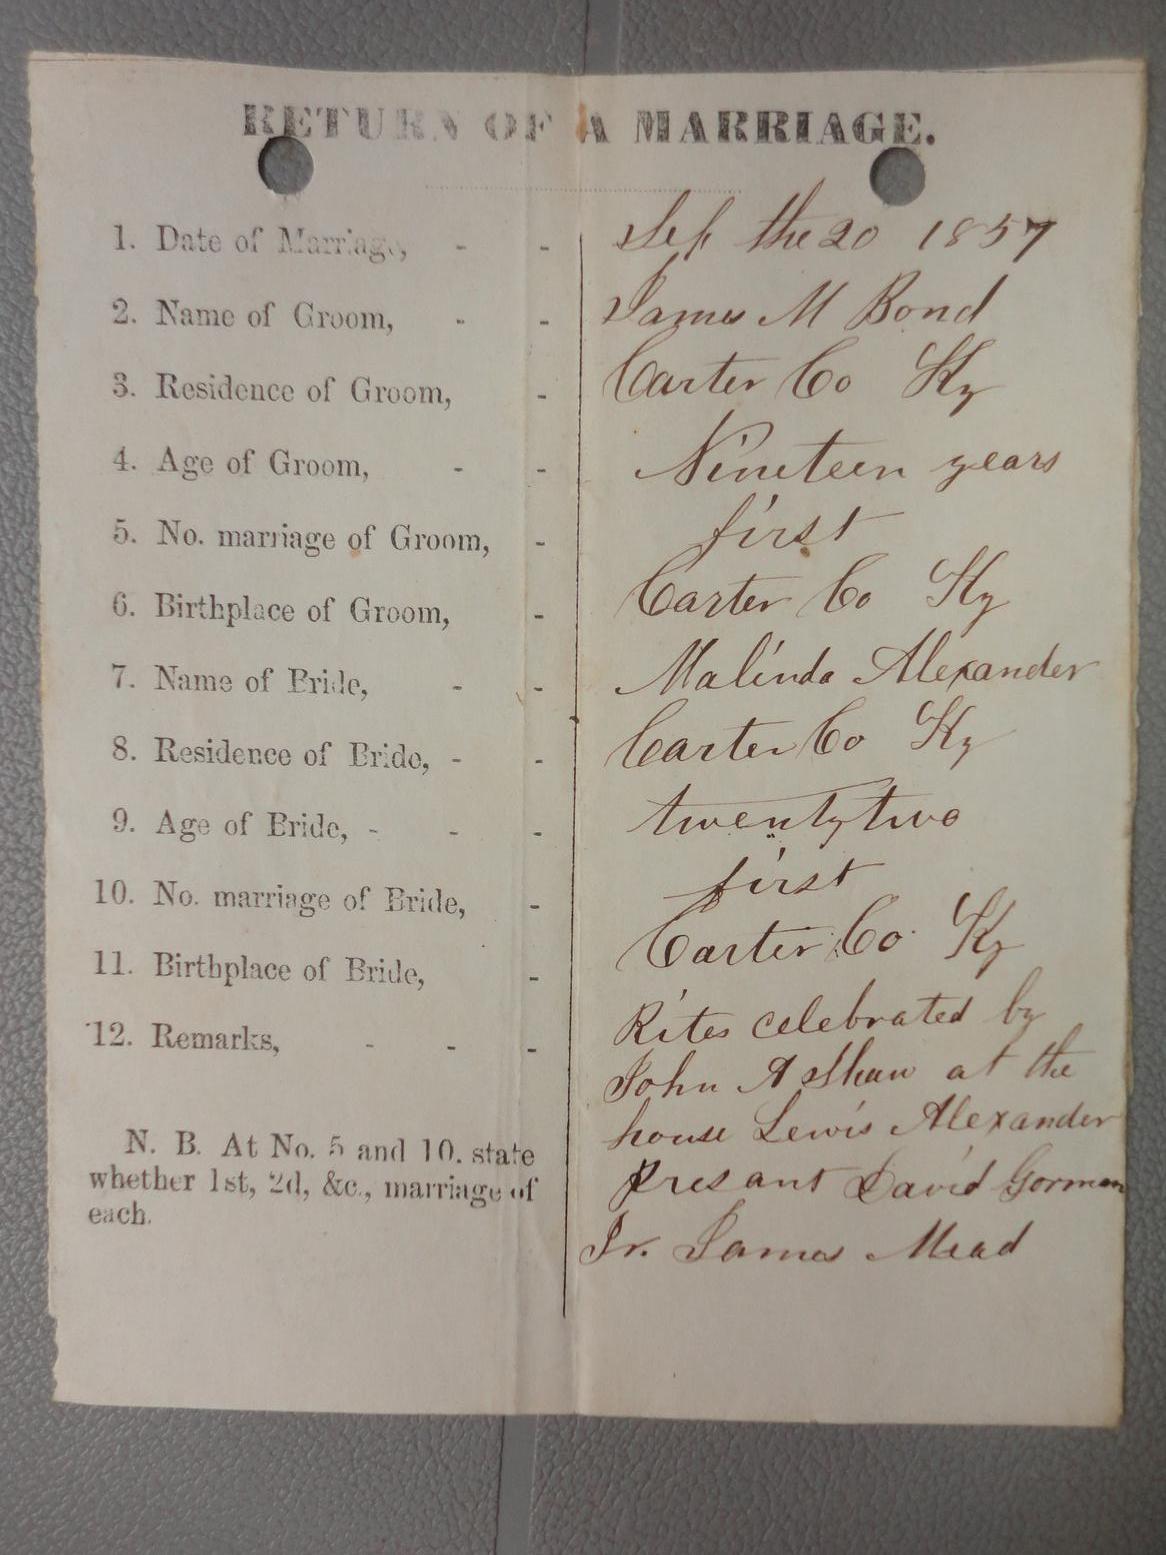 RETURN OF A MARRIAGE.
1. Date of Marriage, - - Sep the 20 1857
2. Name of Groom, - - James M Bond
3. Residence of Groom, - Carter Co Ky
4. Age of Groom, - - Nineteen years
5. No. marriage of Groom, - first
6. Birthplace of Groom, - Carter Co Ky
7. Name of Bride, - - Malinda Alexander
8. Residence of Bride, - - Carter Co Ky
9. Age of Bride, - - - twenty two
10. No. marriage of Bride, - first
11. Birthplace of Bride, - Carter Co Ky
12. Remarks, - - - Rites celebrated by
John A Shaw at the
house Lewis Alexander
presant David Gorman
Jr. James Mead
N. B. At No. 5 and 10. state
whether 1st, 2d, &c., marriage of
each.